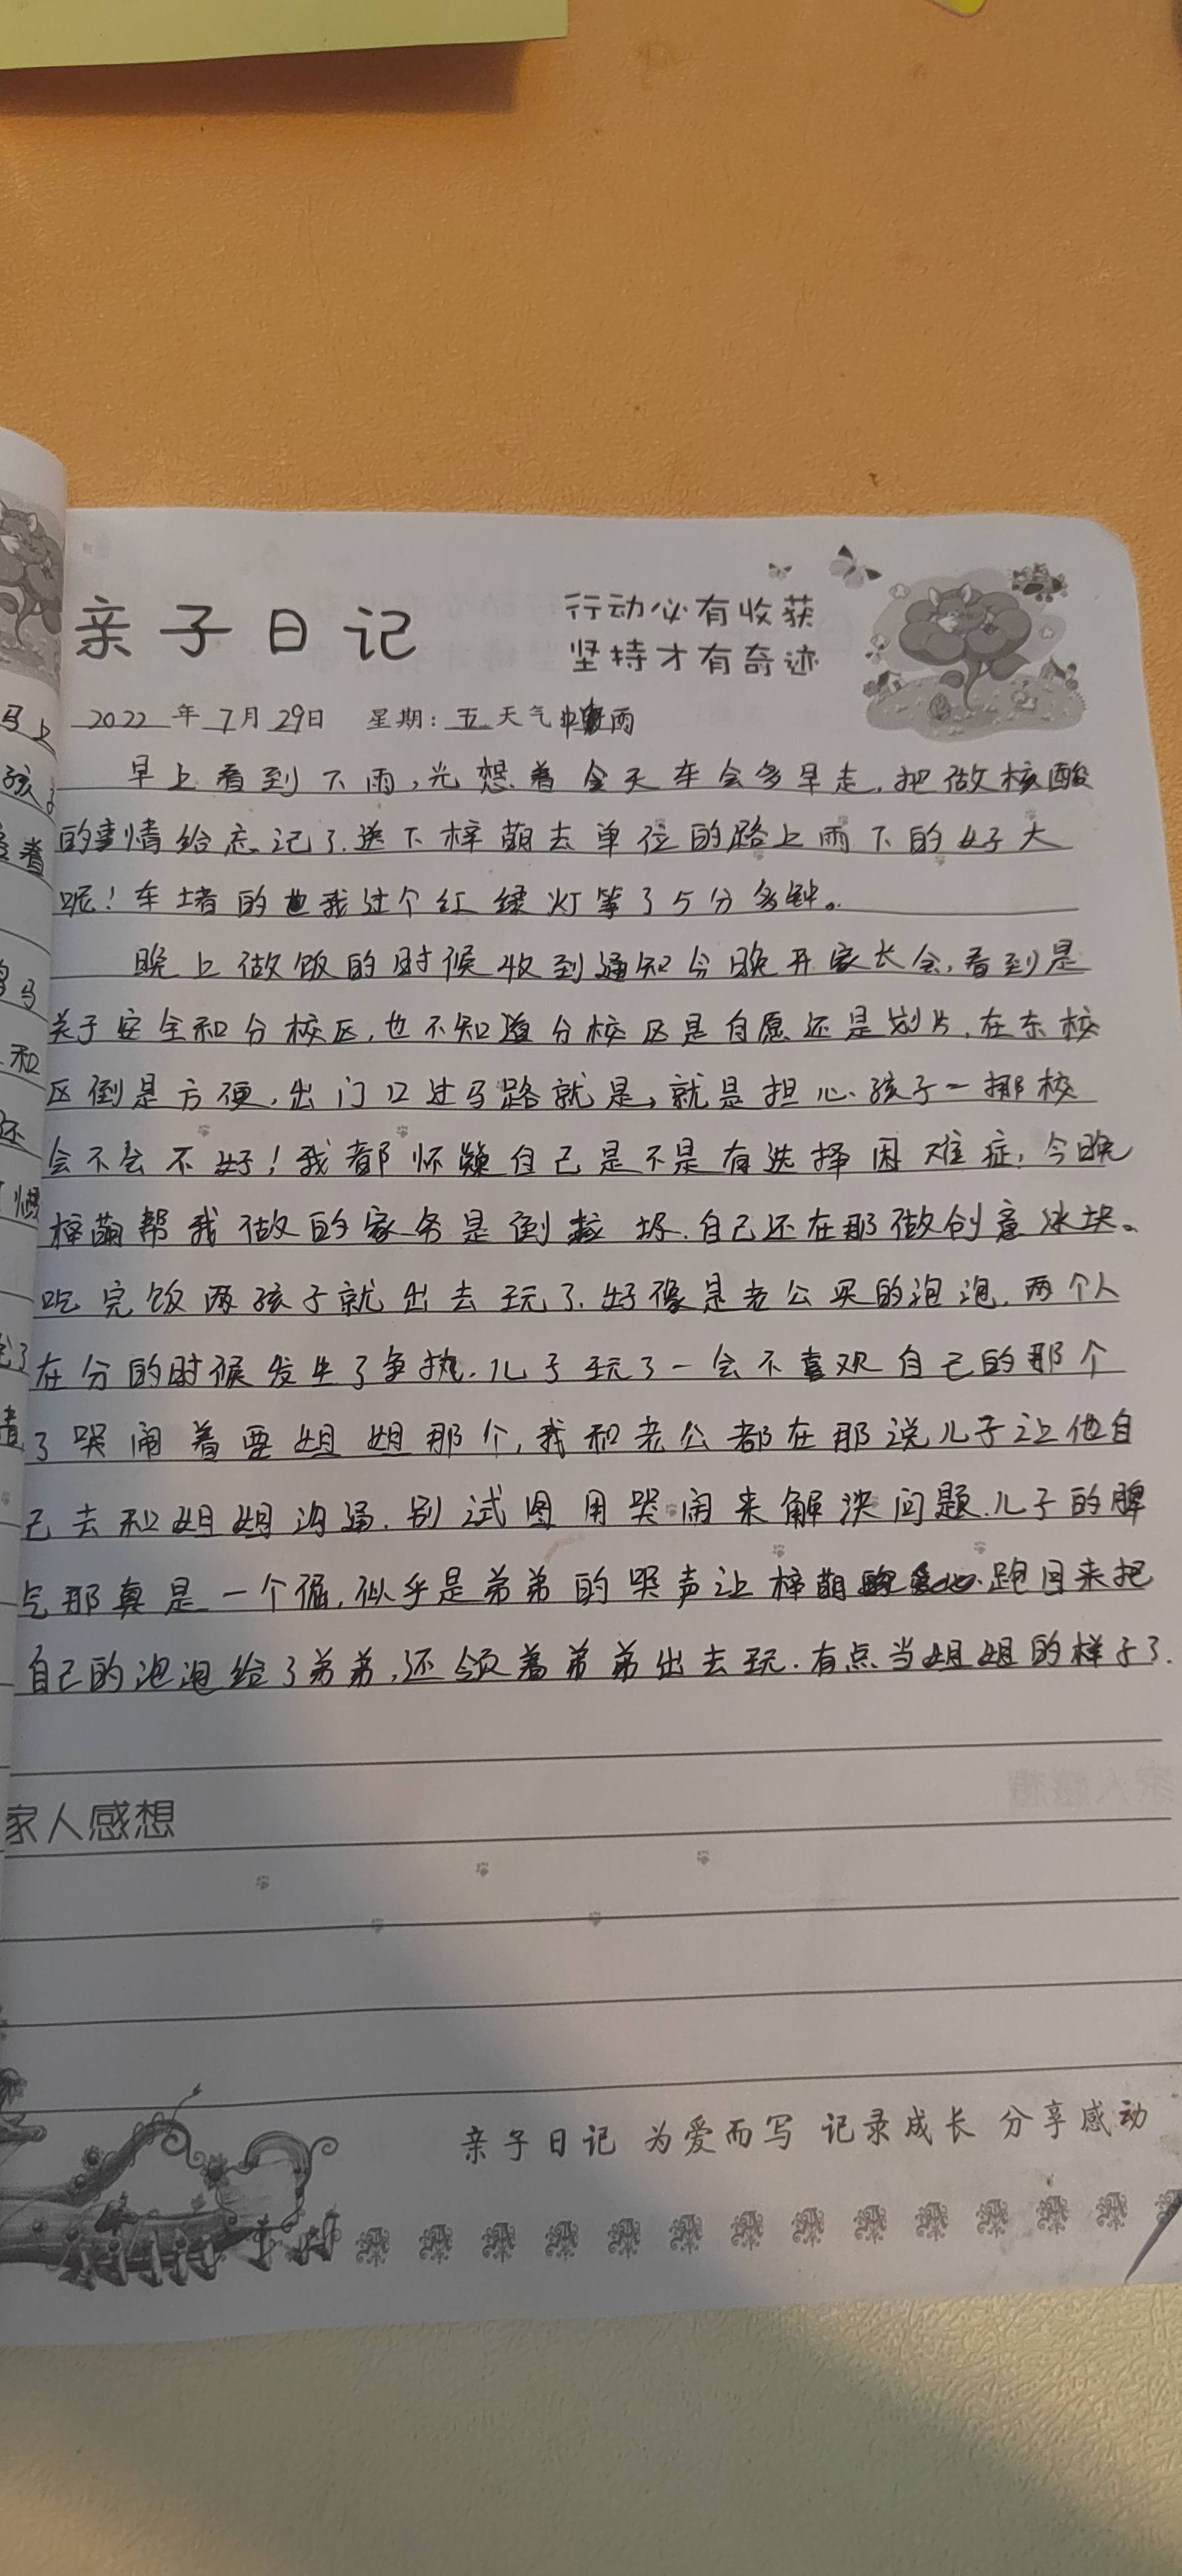 亲子日记
行动必有收获
坚持才有奇迹
2022年7月29日 星期:五 天气 雨
早上看到下雨,光想着今天车会多早走,把做核酸
的事情给忘记了.送下梓萌去单位的路上雨下的好大
呢!车堵的也我过个红绿灯等了5分多钟。
晚上做饭的时候收到通知今晚开家长会,看到是
关于安全和分校区,也不知道分校区是自愿还是划片,在东校
区倒是方便,出门口过马路就是,就是担心孩子一挪校
会不会不好!我都怀疑自己是不是有选择困难症,今晚
梓萌帮我做的家务是倒垃圾.自己还在那做创意冰块。
吃完饭两孩子就出去玩了.好像是老公买的泡泡,两个人
在分的时候发生了争执.儿子玩了一会不喜欢自己的那个
了哭闹着要姐姐那个,我和老公都在那说儿子让他自
己去和姐姐沟通.别试图用哭闹来解决问题.儿子的脾
气那真是一个倔,似乎是弟弟的哭声让梓萌跑回来把
自己的泡泡给了弟弟,还领着弟弟出去玩.有点当姐姐的样子了.
家人感想
亲子日记 为爱而写 记录成长 分享感动
马上
孩子
着
马
和
还
了